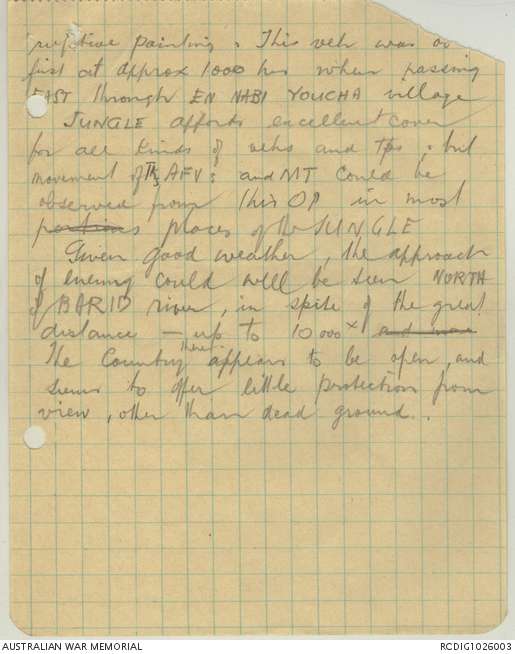 ruptive painting. This veh was
first at approx 1000 hrs when passing
EAST through EN NABI YOUCHA village
JUNGLE affords excellent cover
for all kinds of vehs and tps, but
movement of AFVs and MT could be
observed from this OP in most
portions places of the JUNGLE
Given good weather, the approach
of enemy could well be seen NORTH
of BARID river, in spite of the great
distance – up to 10 000ˣ and
The Country there appears to be open, and
seems to offer little protection from
view, other than dead ground.
AUSTRALIAN WAR MEMORIAL
RCDIG1026003